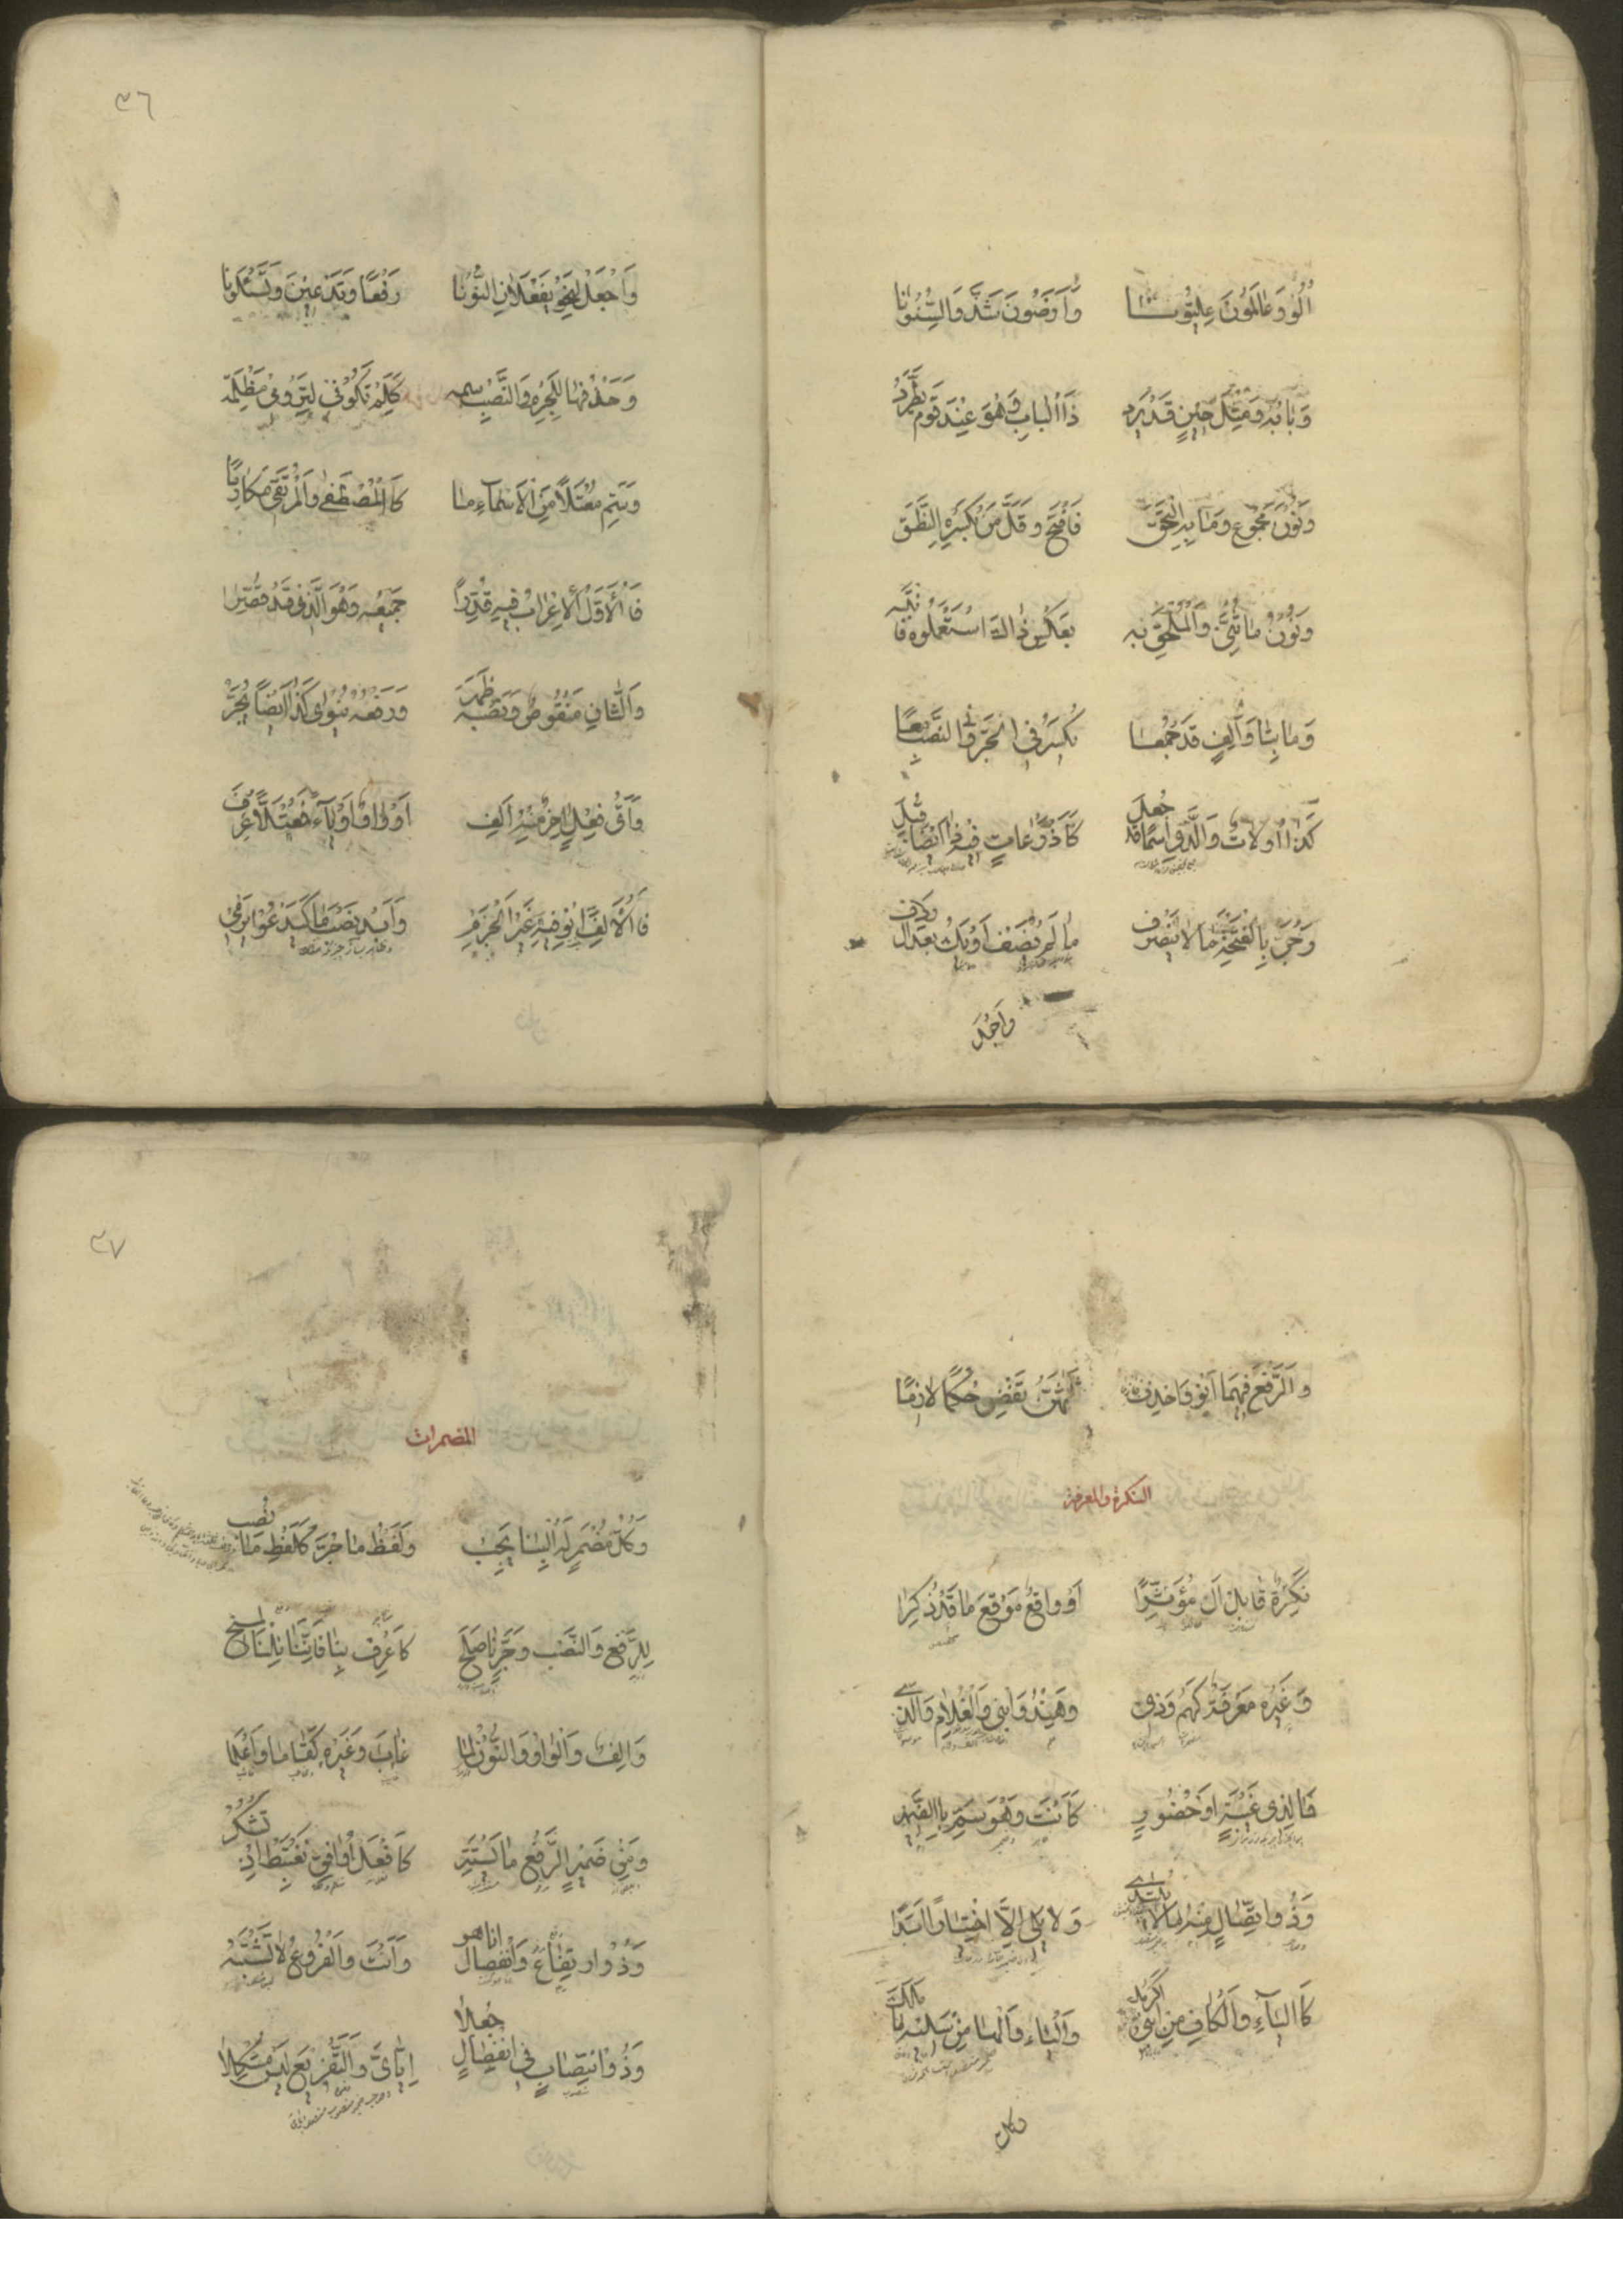 أُلُو وَعَالَمُونَ عِلِّيُّونَا وَأَرَضُونَ شَذَّ وَالسِّنُونَا
وَبَابُهُ وَمِثْلَ حِينٍ قَدْ يَرِد ذَا الْبَابُ وَهْوَ عِنْدَ قَوْمٍ يَطَّرِدْ
وَنُونَ مَجْمُوعٍ وَمَا بِهِ الْتَحَقْ فَافْتَحْ وَقَلَّ مَنْ بِكَسْرِهِ نَطَقْ
وَنُونُ مَا ثُنِّيَ وَالْمُلْحَقِ بِهِ بِعَكْسِ ذَاكَ اسْتَعْمَلُوهُ فَانْتَبِهْ
وَمَا بِتَا وَأَلِفٍ قَدْ جُمِعَا يُكْسَرُ فِي الْجَرِّ وَفِي النَّصْبِ مَعَا
كَذَا أُولَاتُ وَالَّذِي اسْمًا قَدْ جُعِلَ كَأَذْرُعَاتٍ فِيهِ ذَا أَيْضًا قُبِلَ
وَجُرَّ بِالْفَتْحَةِ مَا لَا يَنْصَرِفْ مَا لَمْ يُضَفْ أَوْ يَكُ بَعْدَ أَلْ رَدِفْ
وَاجْعَلْ
٣٦
وَاجْعَلْ لِنَحْوِ يَفْعَلَانِ النُّونَا رَفْعًا وَتَدْعِينَ وَتَسْئَلُونَا
وَحَذْفُهَا لِلْجَزْمِ وَالنَّصْبِ سِمَه كَلَمْ تَكُونِي لِتَرُومِي مَظْلَمَه
وَسَمِّ مُعْتَلًّا مِنَ الْأَسْمَاءِ مَا كَالْمُصْطَفَى وَالْمُرْتَقِي مَكَارِمَا
فَالْأَوَّلُ الْإِعْرَابُ فِيهِ قُدِّرَا جَمِيعُهُ وَهُوَ الَّذِي قَدْ قُصِرَا
وَالثَّانِ مَنْقُوصٌ وَنَصْبُهُ ظَهَرَ وَرَفْعُهُ يُنْوَى كَذَا أَيْضًا يُجَرّْ
وَأَيُّ فِعْلٍ آخِرٌ مِنْهُ أَلِفٌ أَوْ وَاوٌ أَوْ يَاءٌ فَمُعْتَلًّا عُرِفَ
فَالْأَلِفَ انْوِ فِيهِ غَيْرَ الْجَزْمِ وَأَبْدِ نَصْبَ مَا كَيَدْعُو يَرْمِي
وَالرَّفْعَ فِيهِمَا انْوِ وَاحْذِفْ جَازِمًا ثَلَاثَهُنَّ تَقْضِ حُكْمًا لَازِمًا
النكرة والمعرفة
نَكِرَةٌ قَابِلُ أَلْ مُؤَثِّرًا أَوْ وَاقِعٌ مَوْقِعَ مَا قَدْ ذُكِرَا
وَغَيْرُهُ مَعْرِفَةٌ كَهُمْ وَذِي وَهِنْدُ وَابْنِي وَالْغُلَامِ وَالَّذِي
فَمَا لِذِي غَيْبَةٍ أَوْ حُضُورٍ كَأَنْتَ وَهْوَ سَمِّ بِالضَّمِيرِ
وَذُو اتِّصَالٍ مِنْهُ مَا لَا يُبْتَدَى وَلَا يَلِي إِلَّا اخْتِيَارًا أَبَدًا
كَالْيَاءِ وَالْكَافِ مِنِ ابْنِي أَكْرَمَكَ وَالْيَاءِ وَالْهَا مِنْ سَلِيهِ مَا مَلَكَ
وكل
٣٧
المضمرات
وَكُلُّ مُضْمَرٍ لَهُ الْبِنَا يَجِبْ وَلَفْظُ مَا جُرَّ كَلَفْظِ مَا نُصِبَ
لِلرَّفْعِ وَالنَّصْبِ وَجَرٍّ نَا صَلَحَ كَاعْرِفْ بِنَا فَإِنَّنَا نِلْنَا الْمِنَحَ
وَأَلِفٌ وَالْوَاوُ وَالنُّونُ لِمَا غَابَ وَغَيْرِهِ كَقَامَا وَاعْلَمَا
وَمِنْ ضَمِيرِ الرَّفْعِ مَا يَسْتَتِرُ كَافْعَلْ أُوَافِقْ نَغْتَبِطْ إِذْ تَشْكُرُ
وَذُو ارْتِفَاعٍ وَانْفِصَالٍ أَنَا هُو وَأَنْتَ وَالْفُرُوعُ لَا تَشْتَبِهُ
وَذُو انْتِصَابٍ فِي انْفِصَالٍ جُعِلَا إِيَّايَ وَالتَّفْرِيعُ لَيْسَ مُشْكِلَا